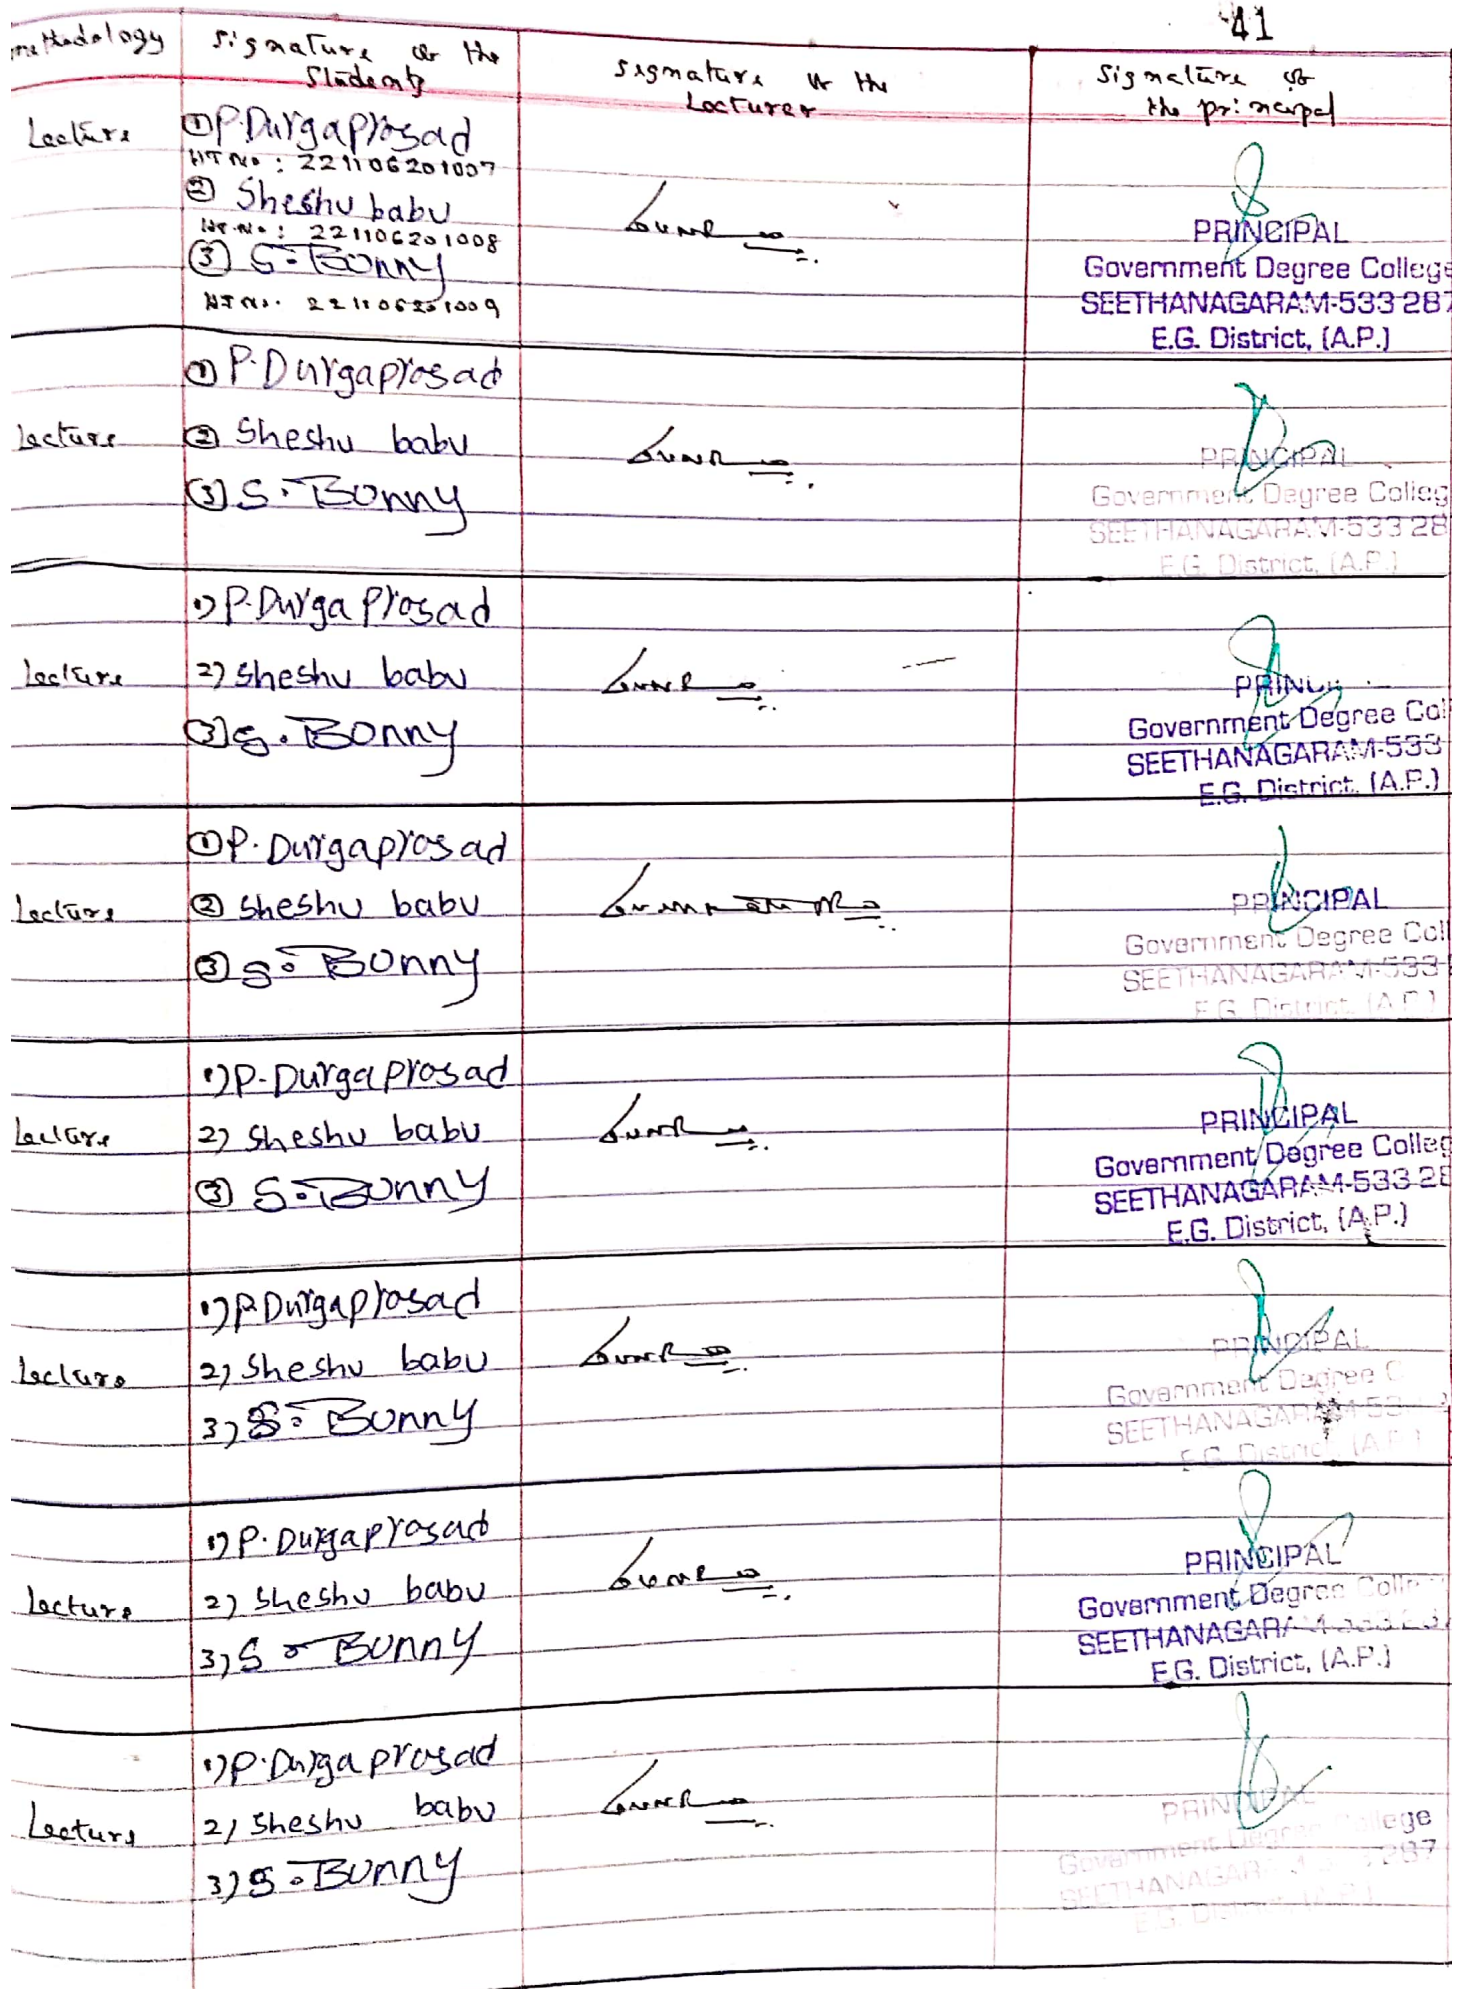 41
methodology
Signature of the
Students
Signature of the
Lecturer
Signature of
the principal
Lecture
① P. Durgaprosad
HT No : 221106201007
② Sheshu babu
HT. No. : 221106201008
③ S. Bunny
HT No. 221106201009
PRINCIPAL
Government Degree College
SEETHANAGARAM-533 287
E.G. District, (A.P.)
Lecture
① P. Durgaprosad
② Sheshu babu
③ S. Bunny
PRINCIPAL
Government Degree Colleg
SEETHANAGARAM-533 28
E.G. District, (A.P.)
Lecture
1) P. Durga Prosad
2) Sheshu babu
③ S. Bunny
PRINCI
Government Degree Col
SEETHANAGARAM-533
E.G. District, (A.P.)
Lecture
① P. Durgaprosad
② Sheshu babu
③ S. Bunny
PRINCIPAL
Government Degree Coll
SEETHANAGARAM-533
E.G. District, (A.P.)
Lecture
1) P. Durgaprosad
2) Sheshu babu
③ S. Bunny
PRINCIPAL
Government Degree Colleg
SEETHANAGARAM-533 28
E.G. District, (A.P.)
Lecture
1) P. Durgaprosad
2) Sheshu babu
3) S. Bunny
PRINCIPAL
Government Degree C
SEETHANAGARAM-53
E.G. District, (A.P.)
Lecture
1) P. Durgaprosad
2) Sheshu babu
3) S. Bunny
PRINCIPAL
Government Degree Colle
SEETHANAGARAM-533 287
E.G. District, (A.P.)
Lecture
1) P. Durga prosad
2) Sheshu babu
3) S. Bunny
PRINCIPAL
Government Degree College
SEETHANAGARAM 287
E.G. District, (A.P.)